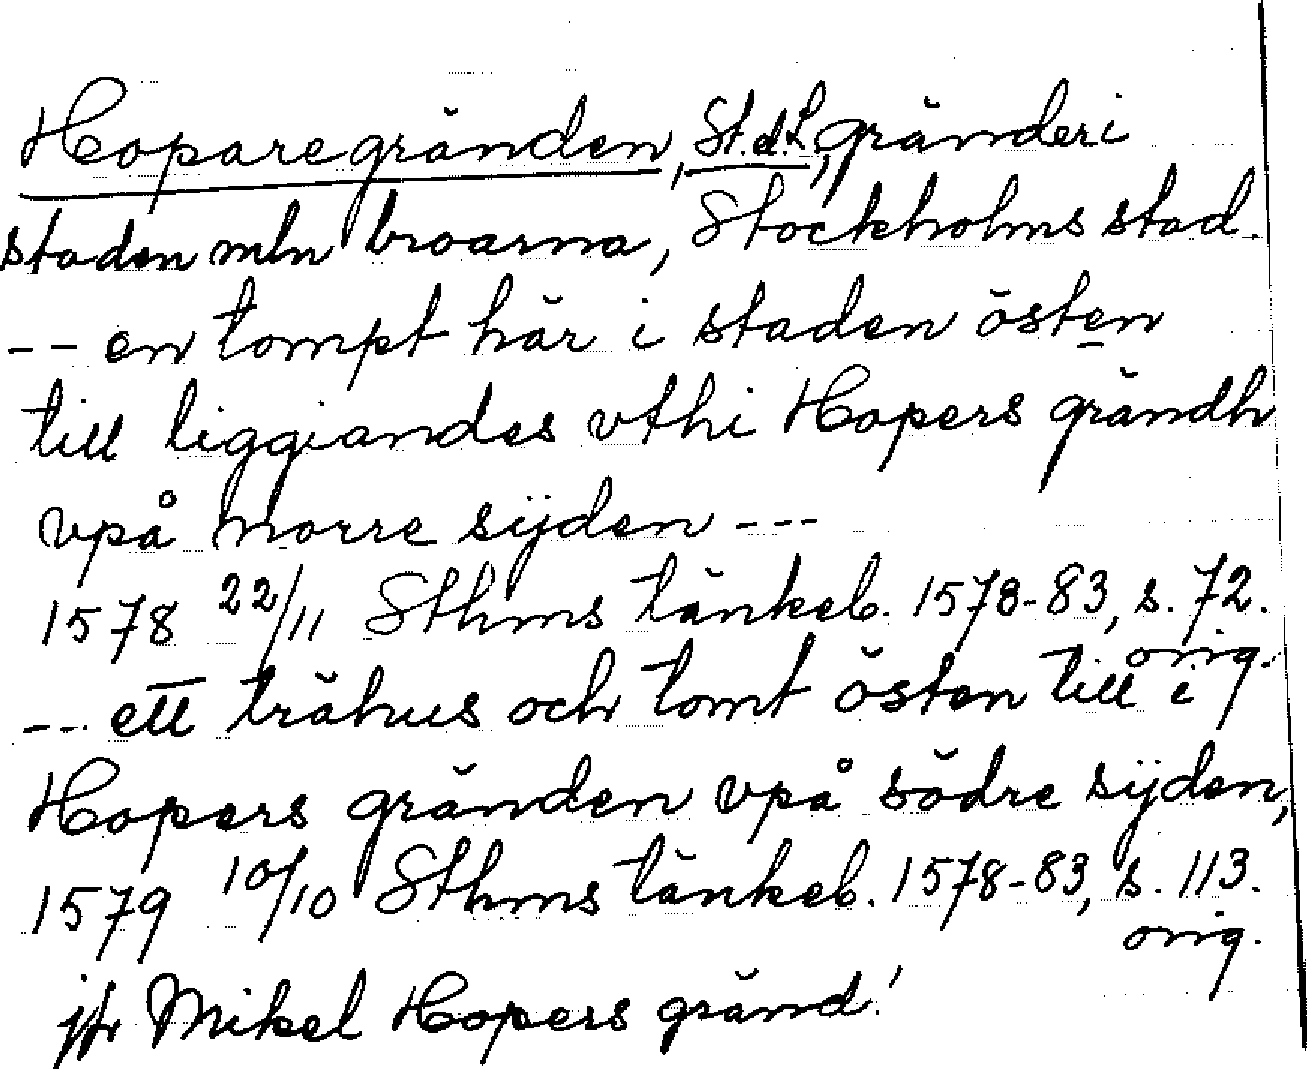 Hoparegränden, St.d.L, gränd i
staden mln broarna, Stockholms stad.
-- en tompt här i staden östen
till liggiandes vthi Hopers grändh
vpå norre sijden ---
1578 22/11 Sthms tänkeb. 1578-83, s. 72.
orig.
-- ett trähus och tomt östen till i
Hopers gränden vpå södre sijden,
1579 10/10 Sthms tänkeb. 1578-83, s. 113.
orig.
jfr Mikel Hopers gränd!